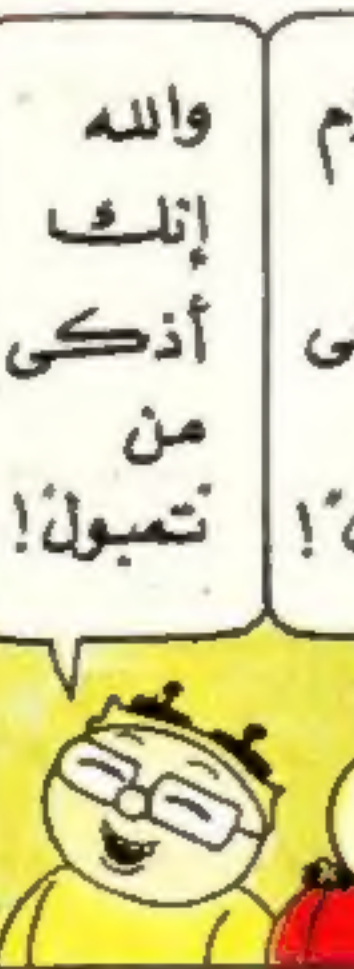 والله
إنك
أذكى
من
"تمبول"!